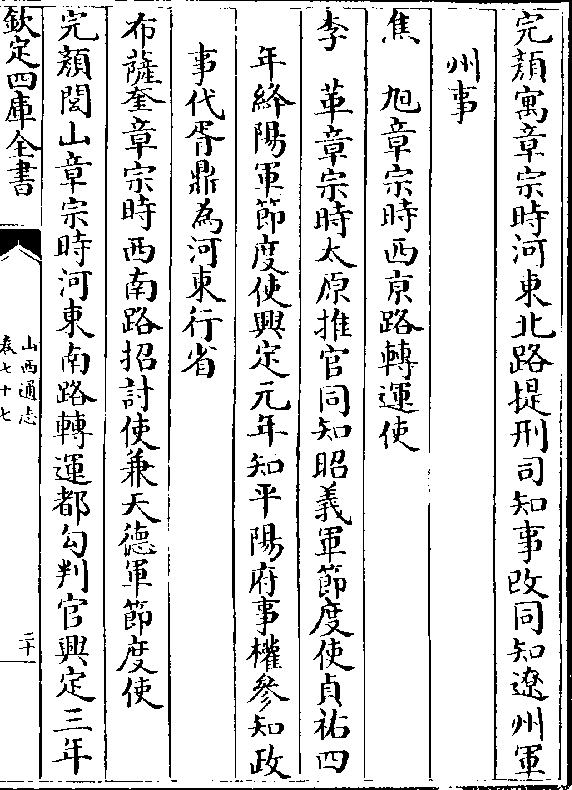 完顔寓章宗時河東北路提刑司知事改同知遼州軍
州事
焦　旭章宗時西京路轉運使
李　革章宗時太原推官同知昭義軍節度使貞祐四
年絳陽軍節度使興定元年知平陽府事權參知政
事代胥鼎為河東行省
布薩奎章宗時西南路招討使兼天德軍節度使
完顔閭山章宗時河東南路轉運都勾判官興定三年
欽定四庫全書
山西通志
卷七十七
二十